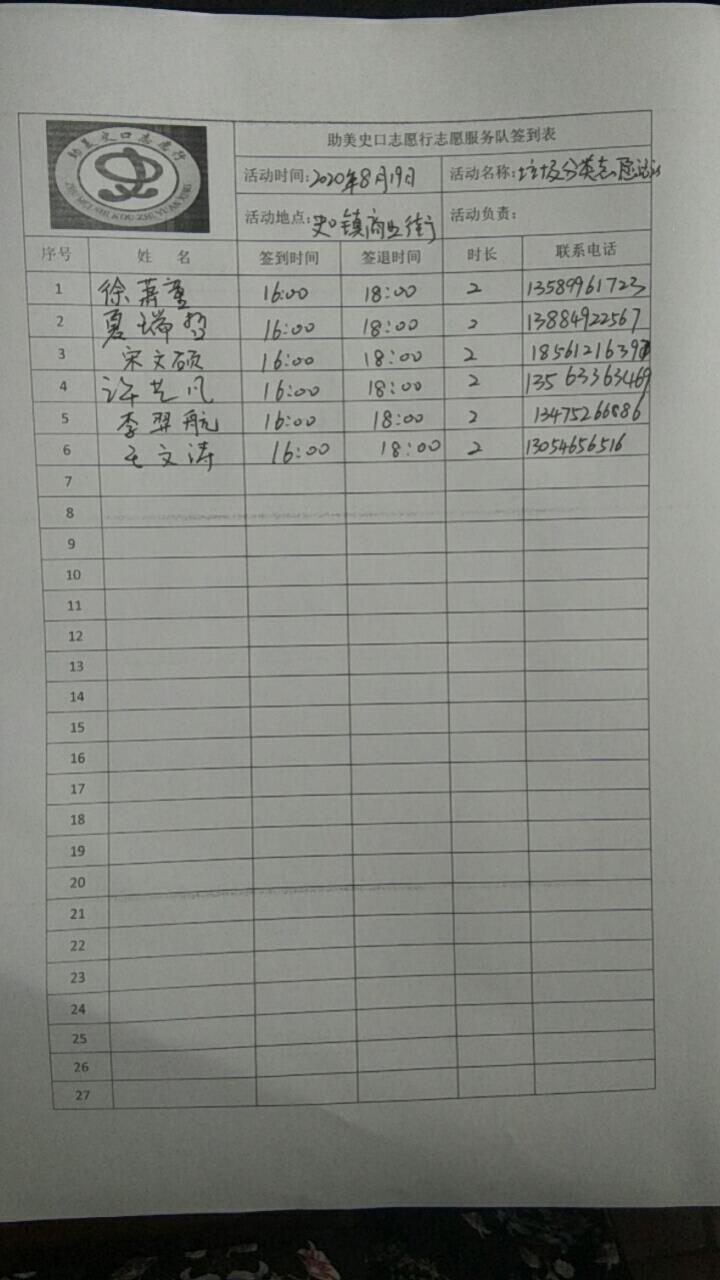 助美史口志愿行
ZHU MEI SHI KOU ZHI YUAN XING
助美史口志愿行志愿服务队签到表
活动时间:2020年8月19日 活动名称:垃圾分类志愿活动
活动地点:史口镇商业街 活动负责:
序号 姓 名 签到时间 签退时间 时长 联系电话
1 徐萧蓳 16:00 18:00 2 13589961723
2 夏瑞 16:00 18:00 2 13884922567
3 宋文硕 16:00 18:00 2 1856121639
4 许艺凡 16:00 18:00 2 13563363469
5 李羿航 16:00 18:00 2 13475266886
6 王文涛 16:00 18:00 2 13054656516
7
8
9
10
11
12
13
14
15
16
17
18
19
20
21
22
23
24
25
26
27